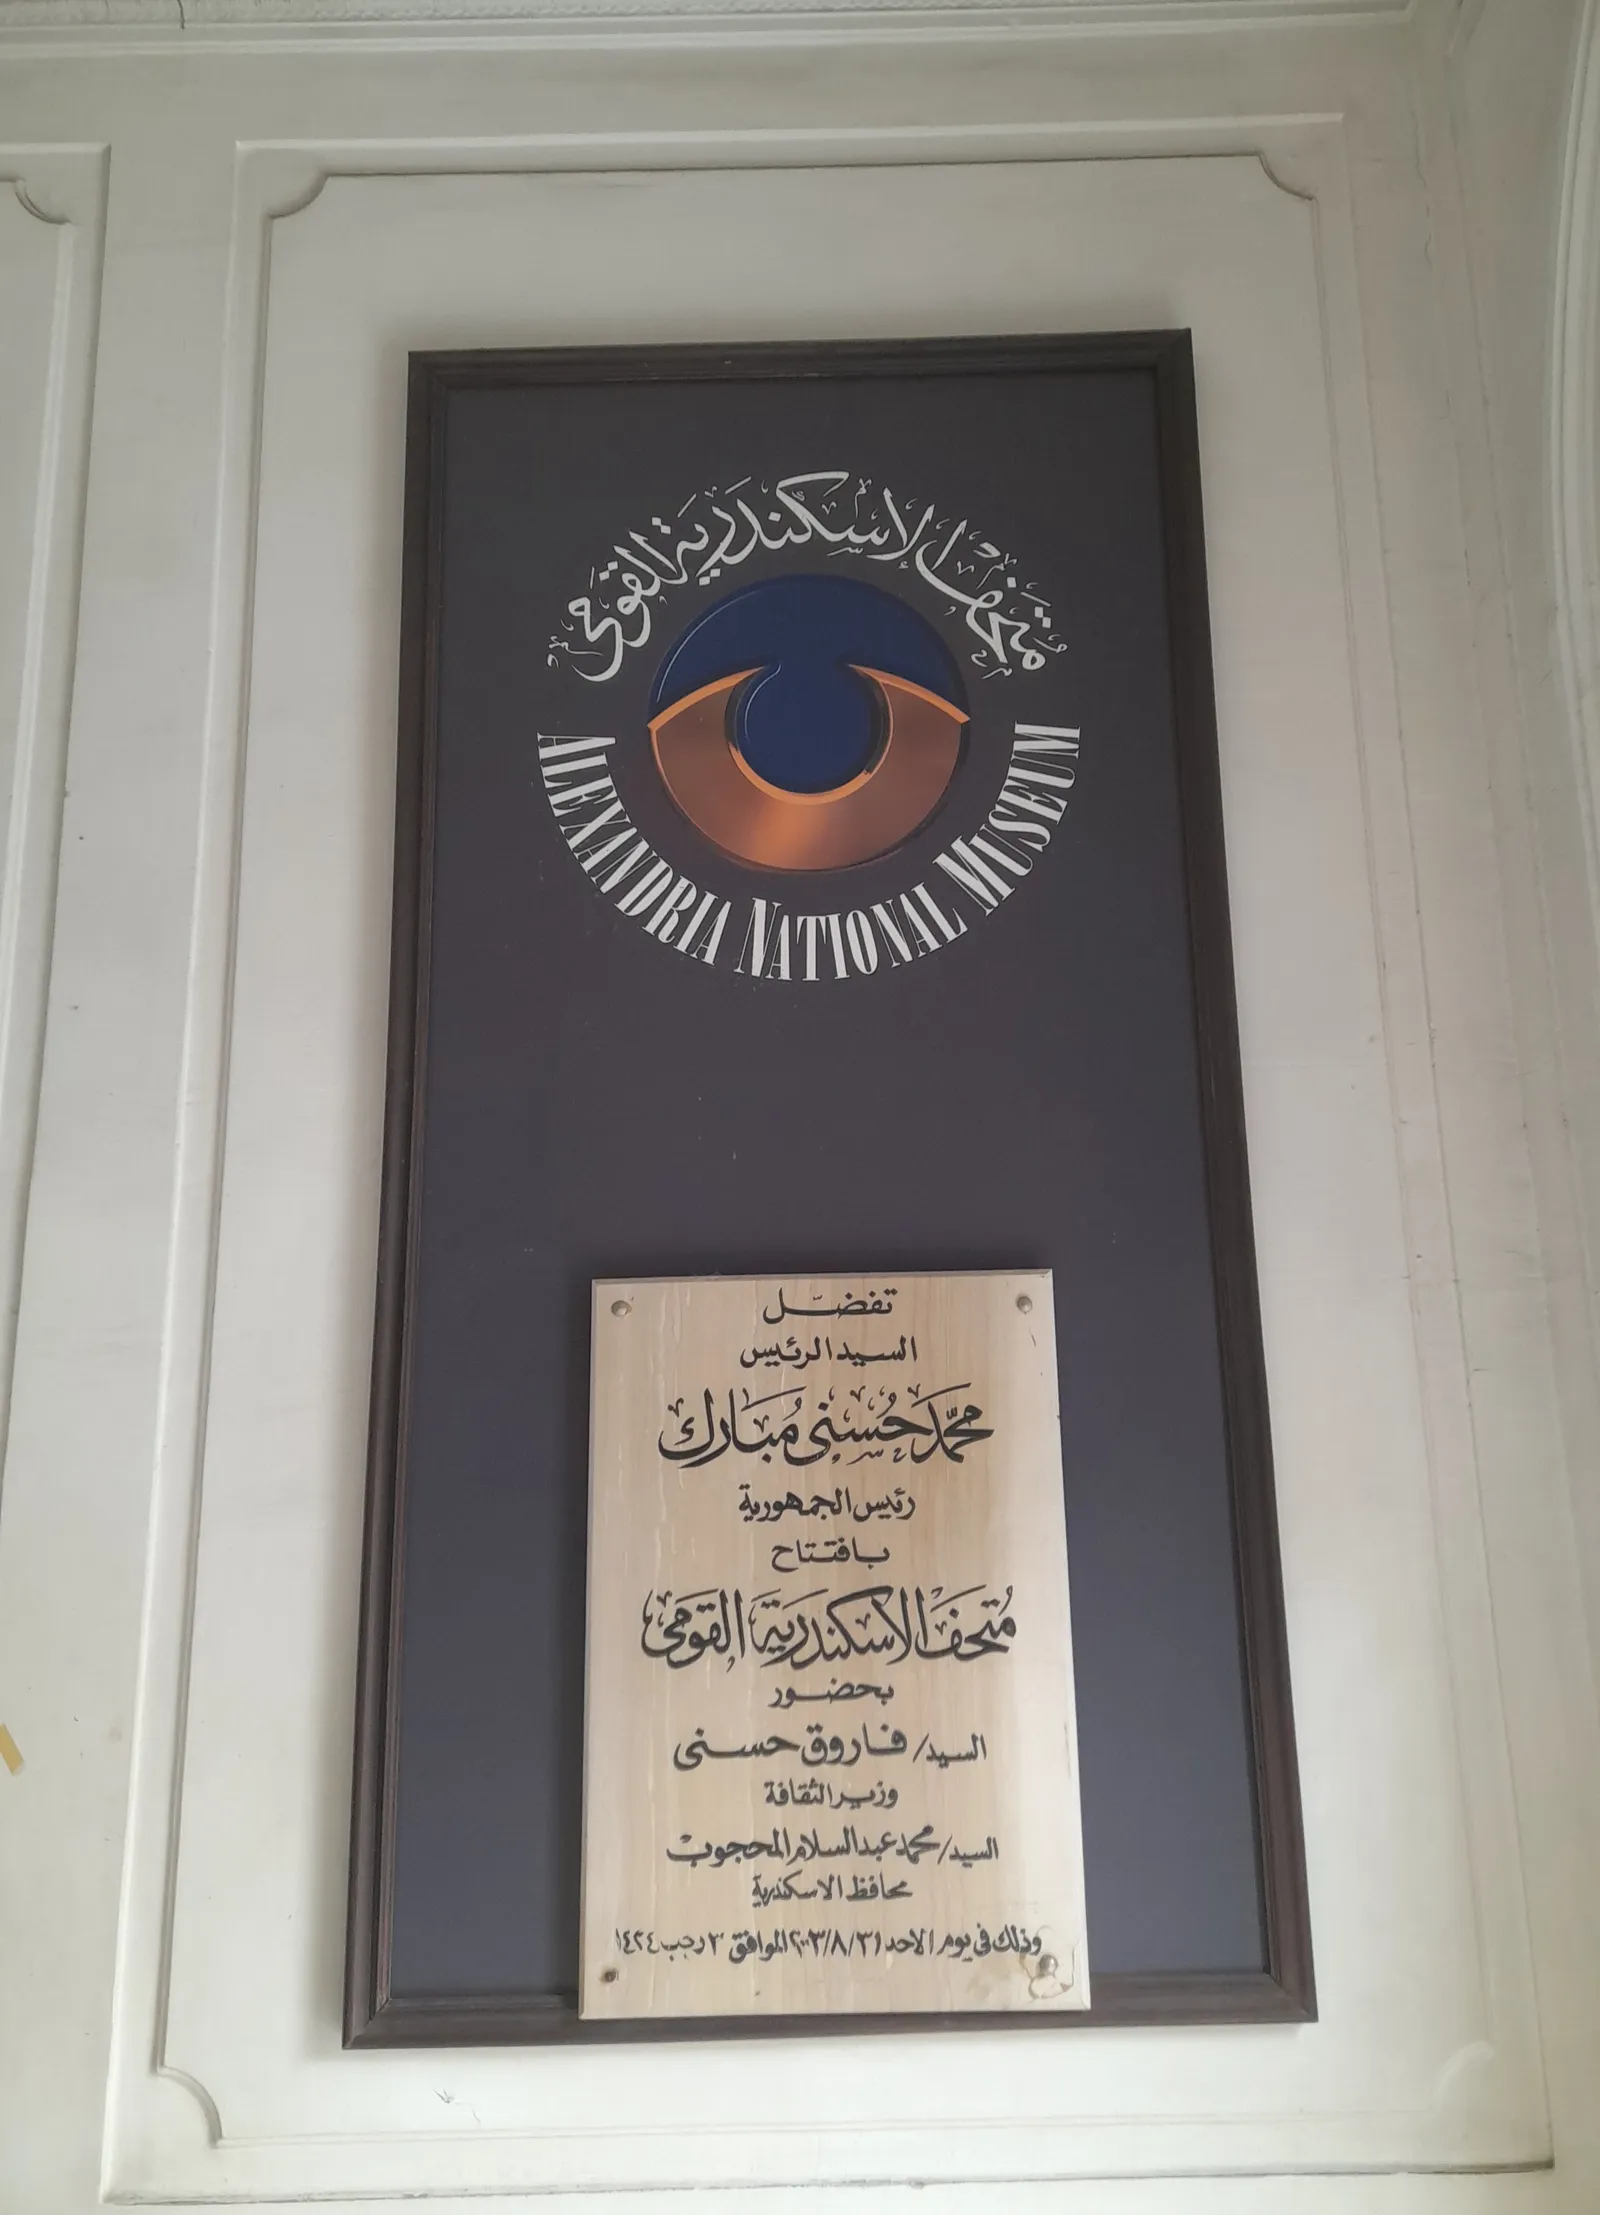 مُتحَف الإسكندَريَة القَومى
ALEXANDRIA NATIONAL MUSEUM
تفضّل
السيد الرئيس
محمّد حُسنى مُبارك
رئيس الجمهورية
بافتتاح
مُتحَف الاسكندَريَة القَومى
بحضور
السيد/ فاروق حسنى
وزير الثقافة
السيد/ محمد عبد السلام المحجوب
محافظ الاسكندرية
وذلك فى يوم الاحد ٢٠٠٣/٨/٣١ الموافق ٣ رجب ١٤٢٤